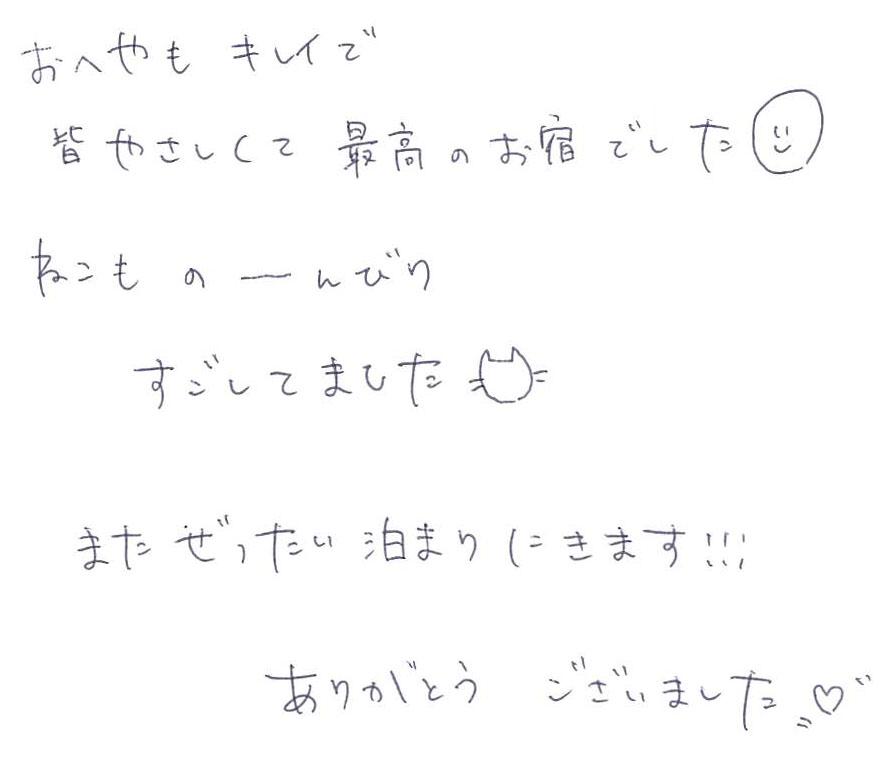 おへやも キレイで
皆やさしくて 最高のお宿でした
ねこも のーんびり
すごしてました
また ぜったい 泊まりにきます!!!
ありがとう ございました♡